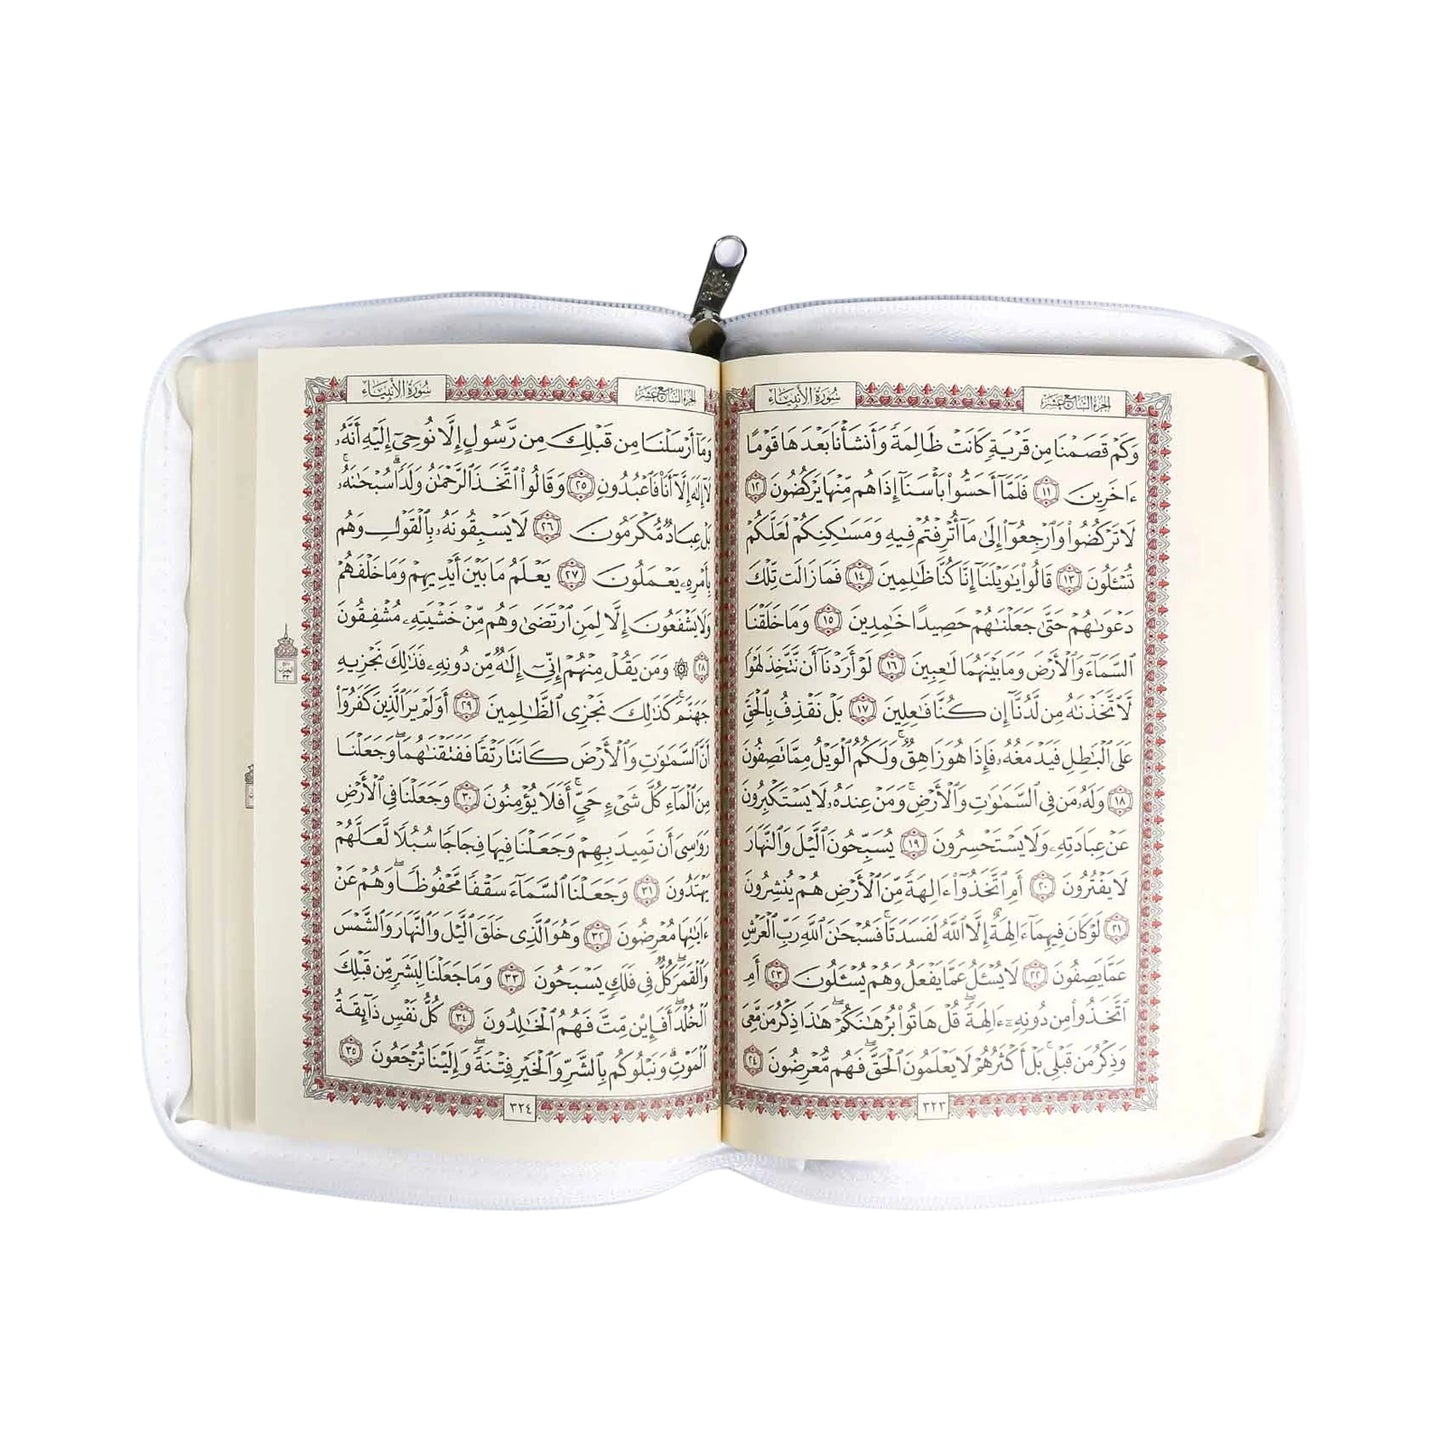 سُورَةُ الأَنبِيَاء
الجزء السابع عشر
وَكَمْ قَصَمْنَا مِن قَرْيَةٍ كَانَتْ ظَالِمَةً وَأَنشَأْنَا بَعْدَهَا قَوْمًا
ءَاخَرِينَ ١١ فَلَمَّآ أَحَسُّوا۟ بَأْسَنَآ إِذَا هُم مِّنْهَا يَرْكُضُونَ ١٢
لَا تَرْكُضُوا۟ وَٱرْجِعُوٓا۟ إِلَىٰ مَآ أُتْرِفْتُمْ فِيهِ وَمَسَـٰكِنِكُمْ لَعَلَّكُمْ
تُسْـَٔلُونَ ١٣ قَالُوا۟ يَـٰوَيْلَنَآ إِنَّا كُنَّا ظَـٰلِمِينَ ١٤ فَمَا زَالَت تِّلْكَ
دَعْوَىٰهُمْ حَتَّىٰ جَعَلْنَـٰهُمْ حَصِيدًا خَـٰمِدِينَ ١٥ وَمَا خَلَقْنَا
ٱلسَّمَآءَ وَٱلْأَرْضَ وَمَا بَيْنَهُمَا لَـٰعِبِينَ ١٦ لَوْ أَرَدْنَآ أَن نَّتَّخِذَ لَهْوًا
لَّٱتَّخَذْنَـٰهُ مِن لَّدُنَّآ إِن كُنَّا فَـٰعِلِينَ ١٧ بَلْ نَقْذِفُ بِٱلْحَقِّ
عَلَى ٱلْبَـٰطِلِ فَيَدْمَغُهُۥ فَإِذَا هُوَ زَاهِقٌ ۚ وَلَكُمُ ٱلْوَيْلُ مِمَّا تَصِفُونَ
١٨ وَلَهُۥ مَن فِى ٱلسَّمَـٰوَٰتِ وَٱلْأَرْضِ ۚ وَمَنْ عِندَهُۥ لَا يَسْتَكْبِرُونَ
عَنْ عِبَادَتِهِۦ وَلَا يَسْتَحْسِرُونَ ١٩ يُسَبِّحُونَ ٱلَّيْلَ وَٱلنَّهَارَ
لَا يَفْتُرُونَ ٢٠ أَمِ ٱتَّخَذُوٓا۟ ءَالِهَةً مِّنَ ٱلْأَرْضِ هُمْ يُنشِرُونَ
٢١ لَوْ كَانَ فِيهِمَآ ءَالِهَةٌ إِلَّا ٱللَّهُ لَفَسَدَتَا ۚ فَسُبْحَـٰنَ ٱللَّهِ رَبِّ ٱلْعَرْشِ
عَمَّا يَصِفُونَ ٢٢ لَا يُسْـَٔلُ عَمَّا يَفْعَلُ وَهُمْ يُسْـَٔلُونَ ٢٣ أَمِ
ٱتَّخَذُوا۟ مِن دُونِهِۦٓ ءَالِهَةً ۖ قُلْ هَاتُوا۟ بُرْهَـٰنَكُمْ ۖ هَـٰذَا ذِكْرُ مَن مَّعِىَ
وَذِكْرُ مَن قَبْلِى ۗ بَلْ أَكْثَرُهُمْ لَا يَعْلَمُونَ ٱلْحَقَّ ۖ فَهُم مُّعْرِضُونَ ٢٤
٣٢٣
سُورَةُ الأَنبِيَاء
الجزء السابع عشر
وَمَآ أَرْسَلْنَا مِن قَبْلِكَ مِن رَّسُولٍ إِلَّا نُوحِىٓ إِلَيْهِ أَنَّهُۥ
لَآ إِلَـٰهَ إِلَّآ أَنَا۠ فَٱعْبُدُونِ ٢٥ وَقَالُوا۟ ٱتَّخَذَ ٱلرَّحْمَـٰنُ وَلَدًا ۗ سُبْحَـٰنَهُۥ ۚ
بَلْ عِبَادٌ مُّكْرَمُونَ ٢٦ لَا يَسْبِقُونَهُۥ بِٱلْقَوْلِ وَهُم
بِأَمْرِهِۦ يَعْمَلُونَ ٢٧ يَعْلَمُ مَا بَيْنَ أَيْدِيهِمْ وَمَا خَلْفَهُمْ
وَلَا يَشْفَعُونَ إِلَّا لِمَنِ ٱرْتَضَىٰ وَهُم مِّنْ خَشْيَتِهِۦ مُشْفِقُونَ
٢٨ ۞ وَمَن يَقُلْ مِنْهُمْ إِنِّىٓ إِلَـٰهٌ مِّن دُونِهِۦ فَذَٰلِكَ نَجْزِيهِ
جَهَنَّمَ ۚ كَذَٰلِكَ نَجْزِى ٱلظَّـٰلِمِينَ ٢٩ أَوَلَمْ يَرَ ٱلَّذِينَ كَفَرُوٓا۟
أَنَّ ٱلسَّمَـٰوَٰتِ وَٱلْأَرْضَ كَانَتَا رَتْقًا فَفَتَقْنَـٰهُمَا ۖ وَجَعَلْنَا
مِنَ ٱلْمَآءِ كُلَّ شَىْءٍ حَىٍّ ۖ أَفَلَا يُؤْمِنُونَ ٣٠ وَجَعَلْنَا فِى ٱلْأَرْضِ
رَوَٰسِىَ أَن تَمِيدَ بِهِمْ وَجَعَلْنَا فِيهَا فِجَاجًا سُبُلًا لَّعَلَّهُمْ
يَهْتَدُونَ ٣١ وَجَعَلْنَا ٱلسَّمَآءَ سَقْفًا مَّحْفُوظًا ۖ وَهُمْ عَنْ
ءَايَـٰتِهَا مُعْرِضُونَ ٣٢ وَهُوَ ٱلَّذِى خَلَقَ ٱلَّيْلَ وَٱلنَّهَارَ وَٱلشَّمْسَ
وَٱلْقَمَرَ ۖ كُلٌّ فِى فَلَكٍ يَسْبَحُونَ ٣٣ وَمَا جَعَلْنَا لِبَشَرٍ مِّن قَبْلِكَ
ٱلْخُلْدَ ۖ أَفَإِي۟ن مِّتَّ فَهُمُ ٱلْخَـٰلِدُونَ ٣٤ كُلُّ نَفْسٍ ذَآئِقَةُ
ٱلْمَوْتِ ۗ وَنَبْلُوكُم بِٱلشَّرِّ وَٱلْخَيْرِ فِتْنَةً ۖ وَإِلَيْنَا تُرْجَعُونَ ٣٥
٣٢٤